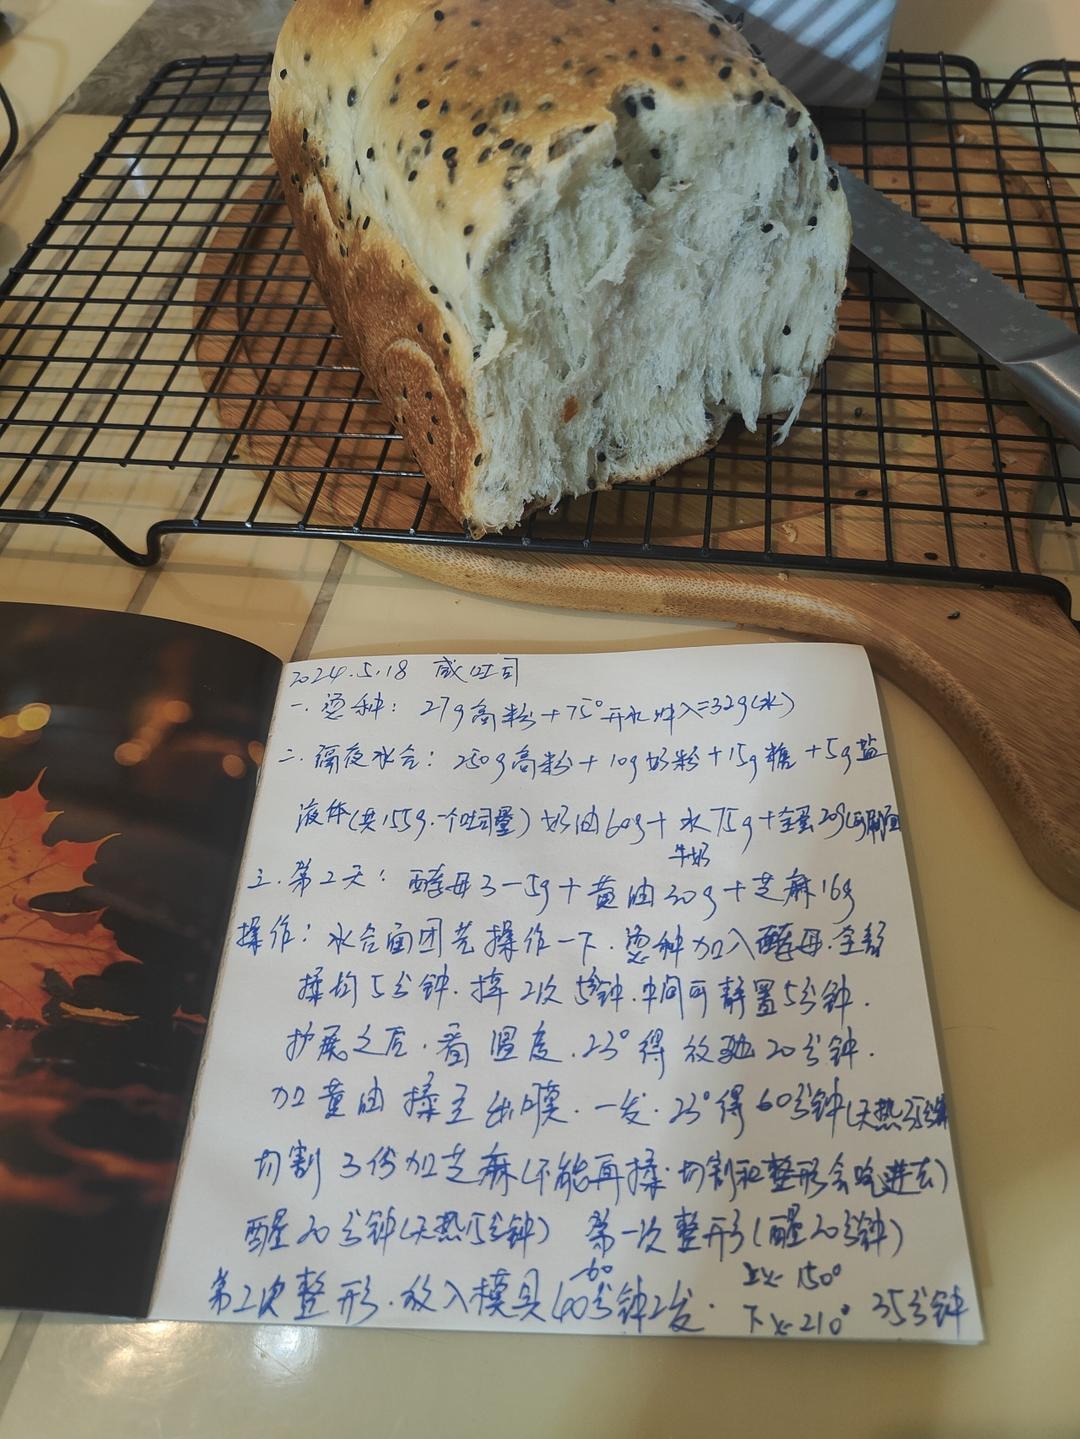 2024.5.18 咸吐司
一.烫种: 27g高粉+75°开水冲入=32g(水)
二.隔夜水合: 250g高粉+10g奶粉+15g糖+5g盐
液体(共155g.一个吐司量) 奶油60g+水75g+全蛋20g(可刷面
牛奶
三.第2天: 酵母3-5g+黄油20g+芝麻16g
操作: 水合面团先操作一下.烫种加入酵母.全部
揉均5分钟.摔2次5分钟.中间可静置5分钟.
扩展之后.看温度.23°得放驰20分钟.
加黄油揉至出膜.一发.23°得60分钟(天热35分钟
切割3份加芝麻(不能再揉.切割和整形会吃进去)
醒20分钟(天热15分钟) 第一次整形(醒20分钟)
第2次整形.放入模具40-60分钟2发. 上火150° 下火210° 35分钟